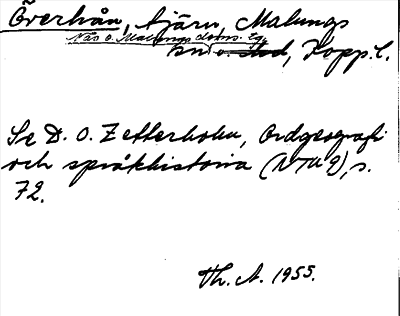 Överhån, tjärn, Malungs
Näs o. Malungs doms. tg.
sn o. stod, Kopp. l.
Se D. O. Zetterholm, Ordgeografi
och språkhistoria (NTU 9), s.
72.
Th. A. 1955.